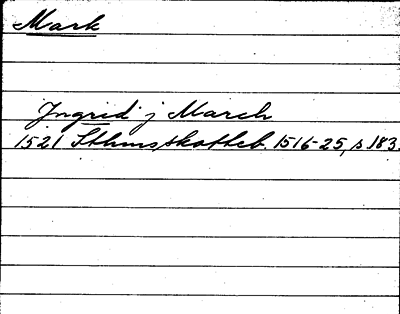 Mark
Ingrid j March
1521 Sthmsskotteb. 1516-25, s 183.